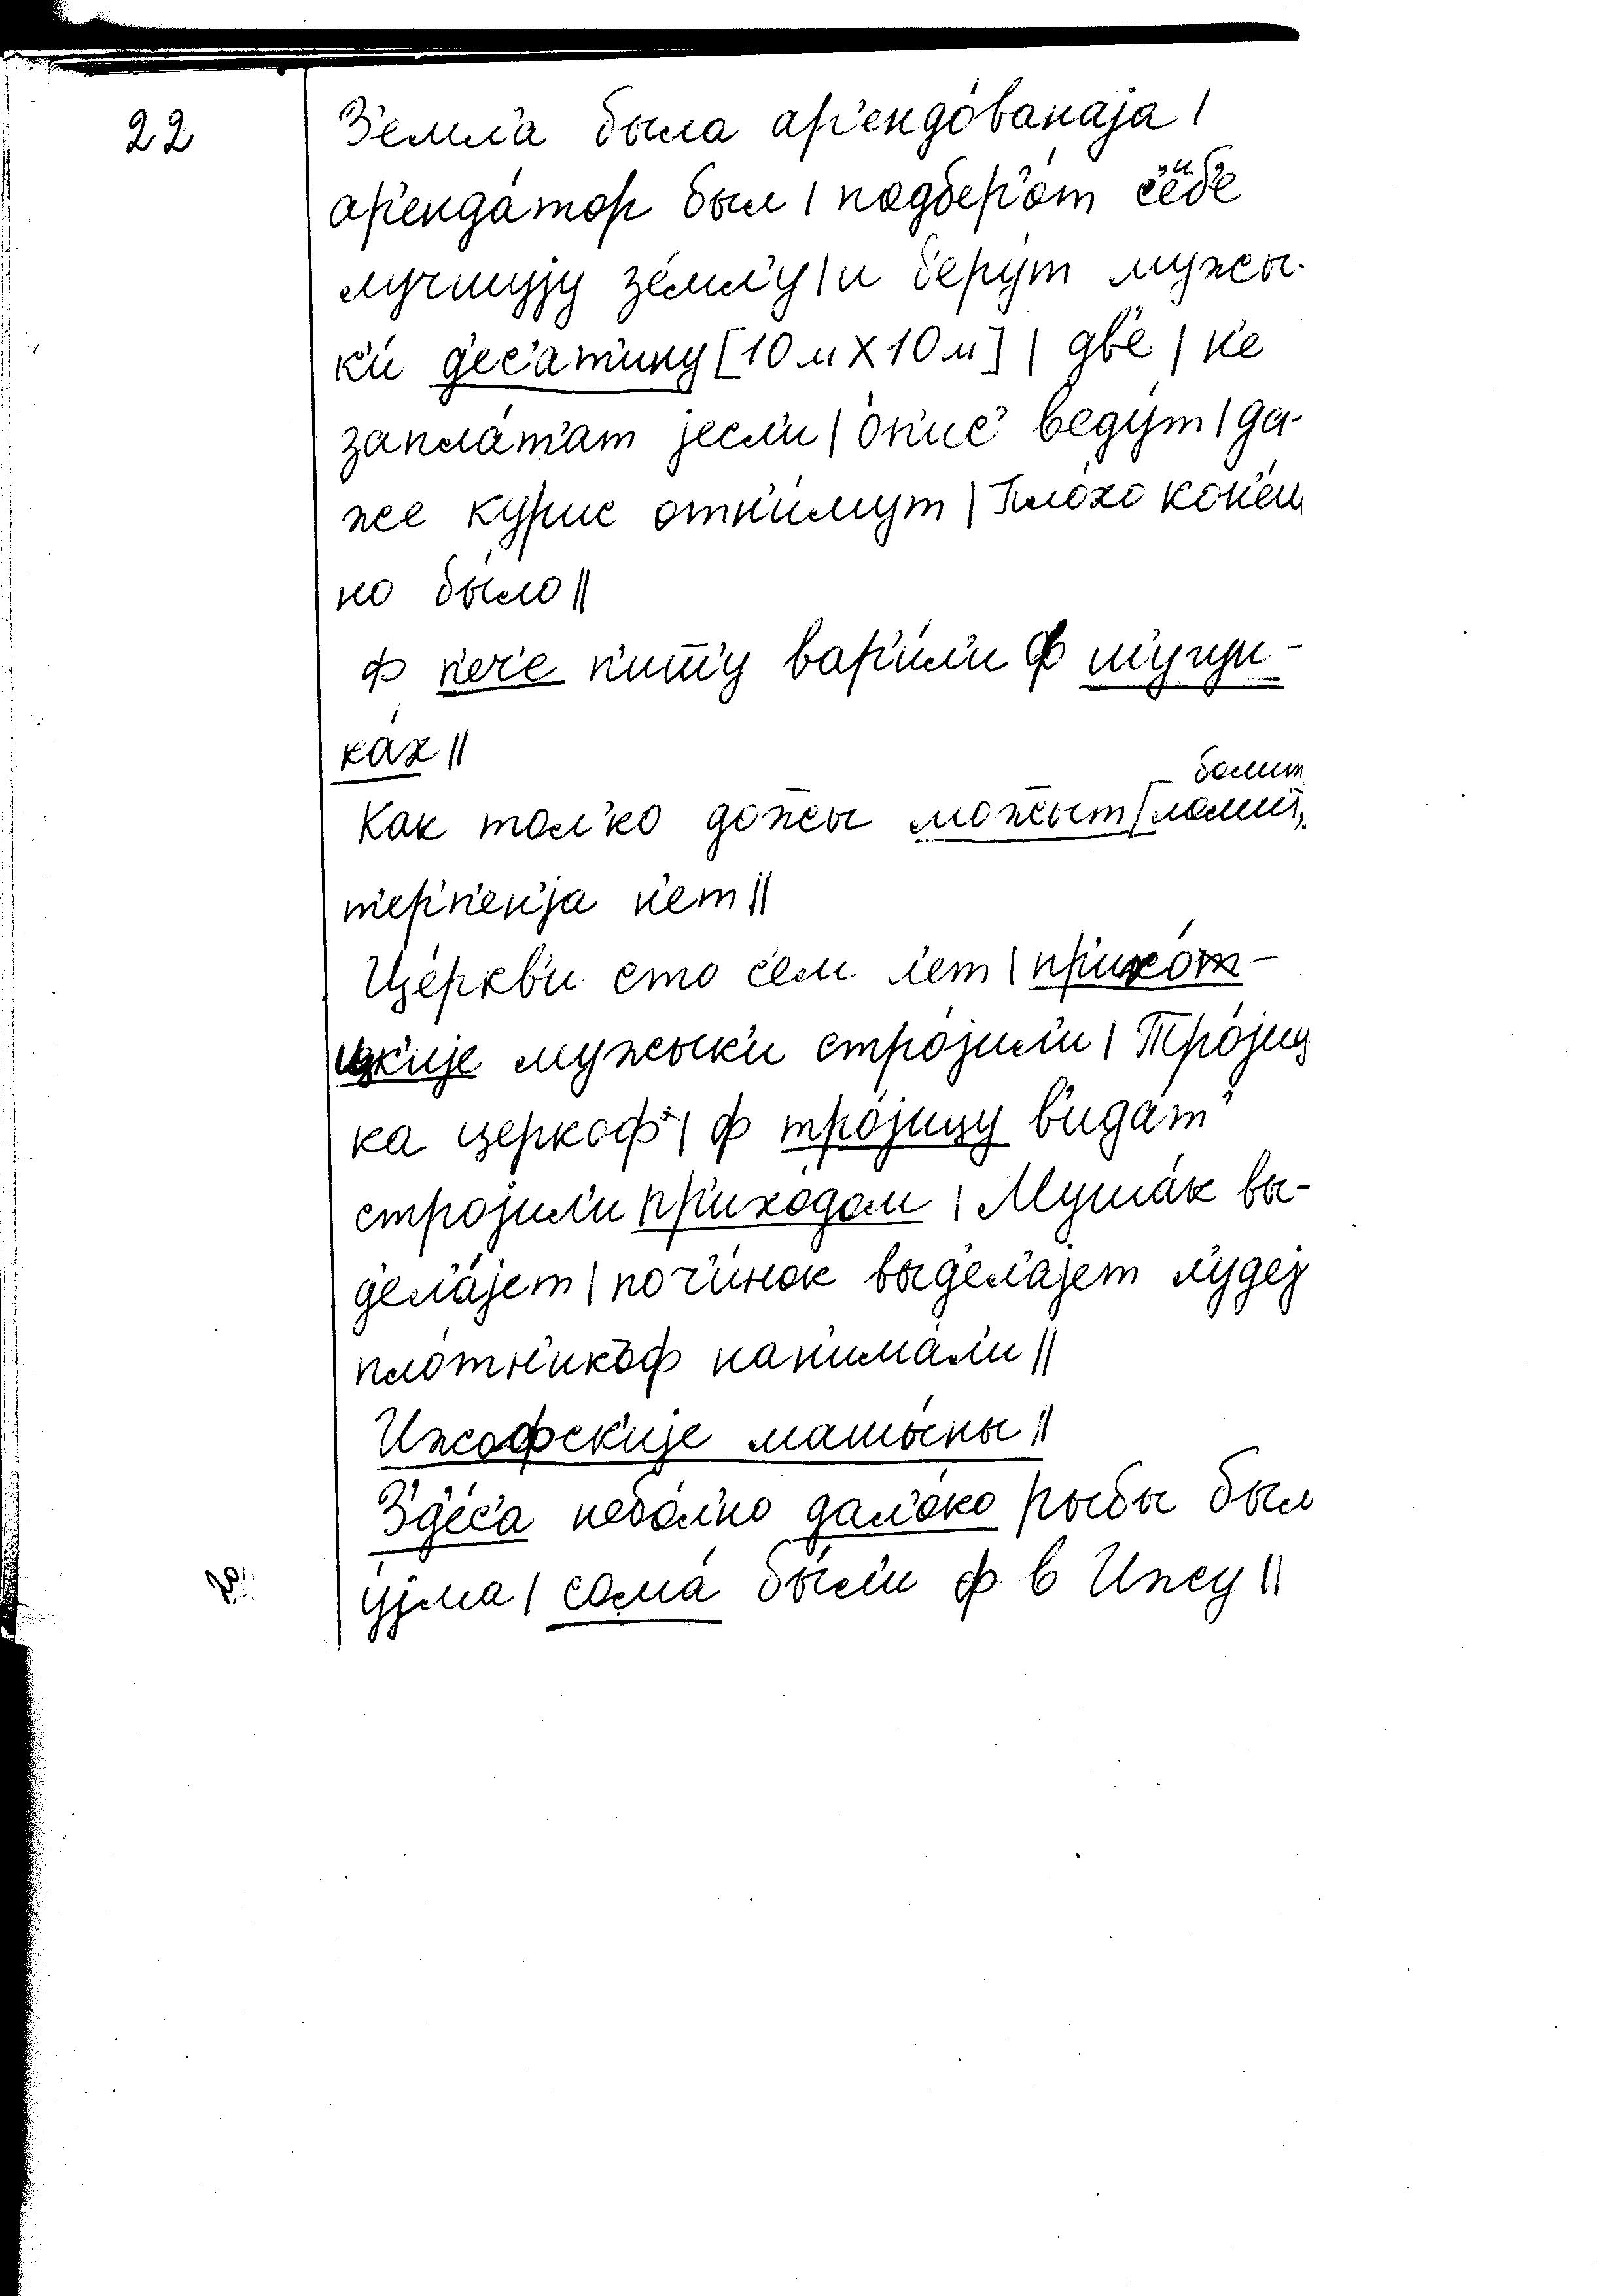 22
З'емл'а была ар'ендо́ванаjа |
ар'енда́тор был | подбер'о́т с'еб'е
лучшуjу зе́мл'у | и б'еру́т мужы-
к'и́ д'ес'ат'ину [10 м X 10 м] | дв'е | н'е
запла́т'ат jесл'и | о́п'ис' в'еду́т | да-
же кур'иц отн'и́мут | Пло́хо кон'е́ш
но бы́ло ||
ф п'еч'е п'ишшу вар'и́л'и ф шугун-
ка́х ||
болит
Как тол'ко дожжы можжыт | ломит,
т'ерп'ен'jа н'ет ||
Це́ркв'и сто с'ем л'ет | пр'ихо́т-
цк'иjе мужык'и стро́jил'и | Тро́jиц
ка церкоф' | ф тро́jицу в'ида́т'
строjил'и пр'ихо́дом | Муша́к вы-
д'ел'а́jет | поч'и́нок выд'ел'аjет л'уд'еj
пло́тн'икоф нан'има́л'и ||
Ижофск'иjе машы́ны ||
Зд'е́с'а небол'но дал'о́ко рыбы был
у́jма | сома́ бы́л'и ф в Ижу ||